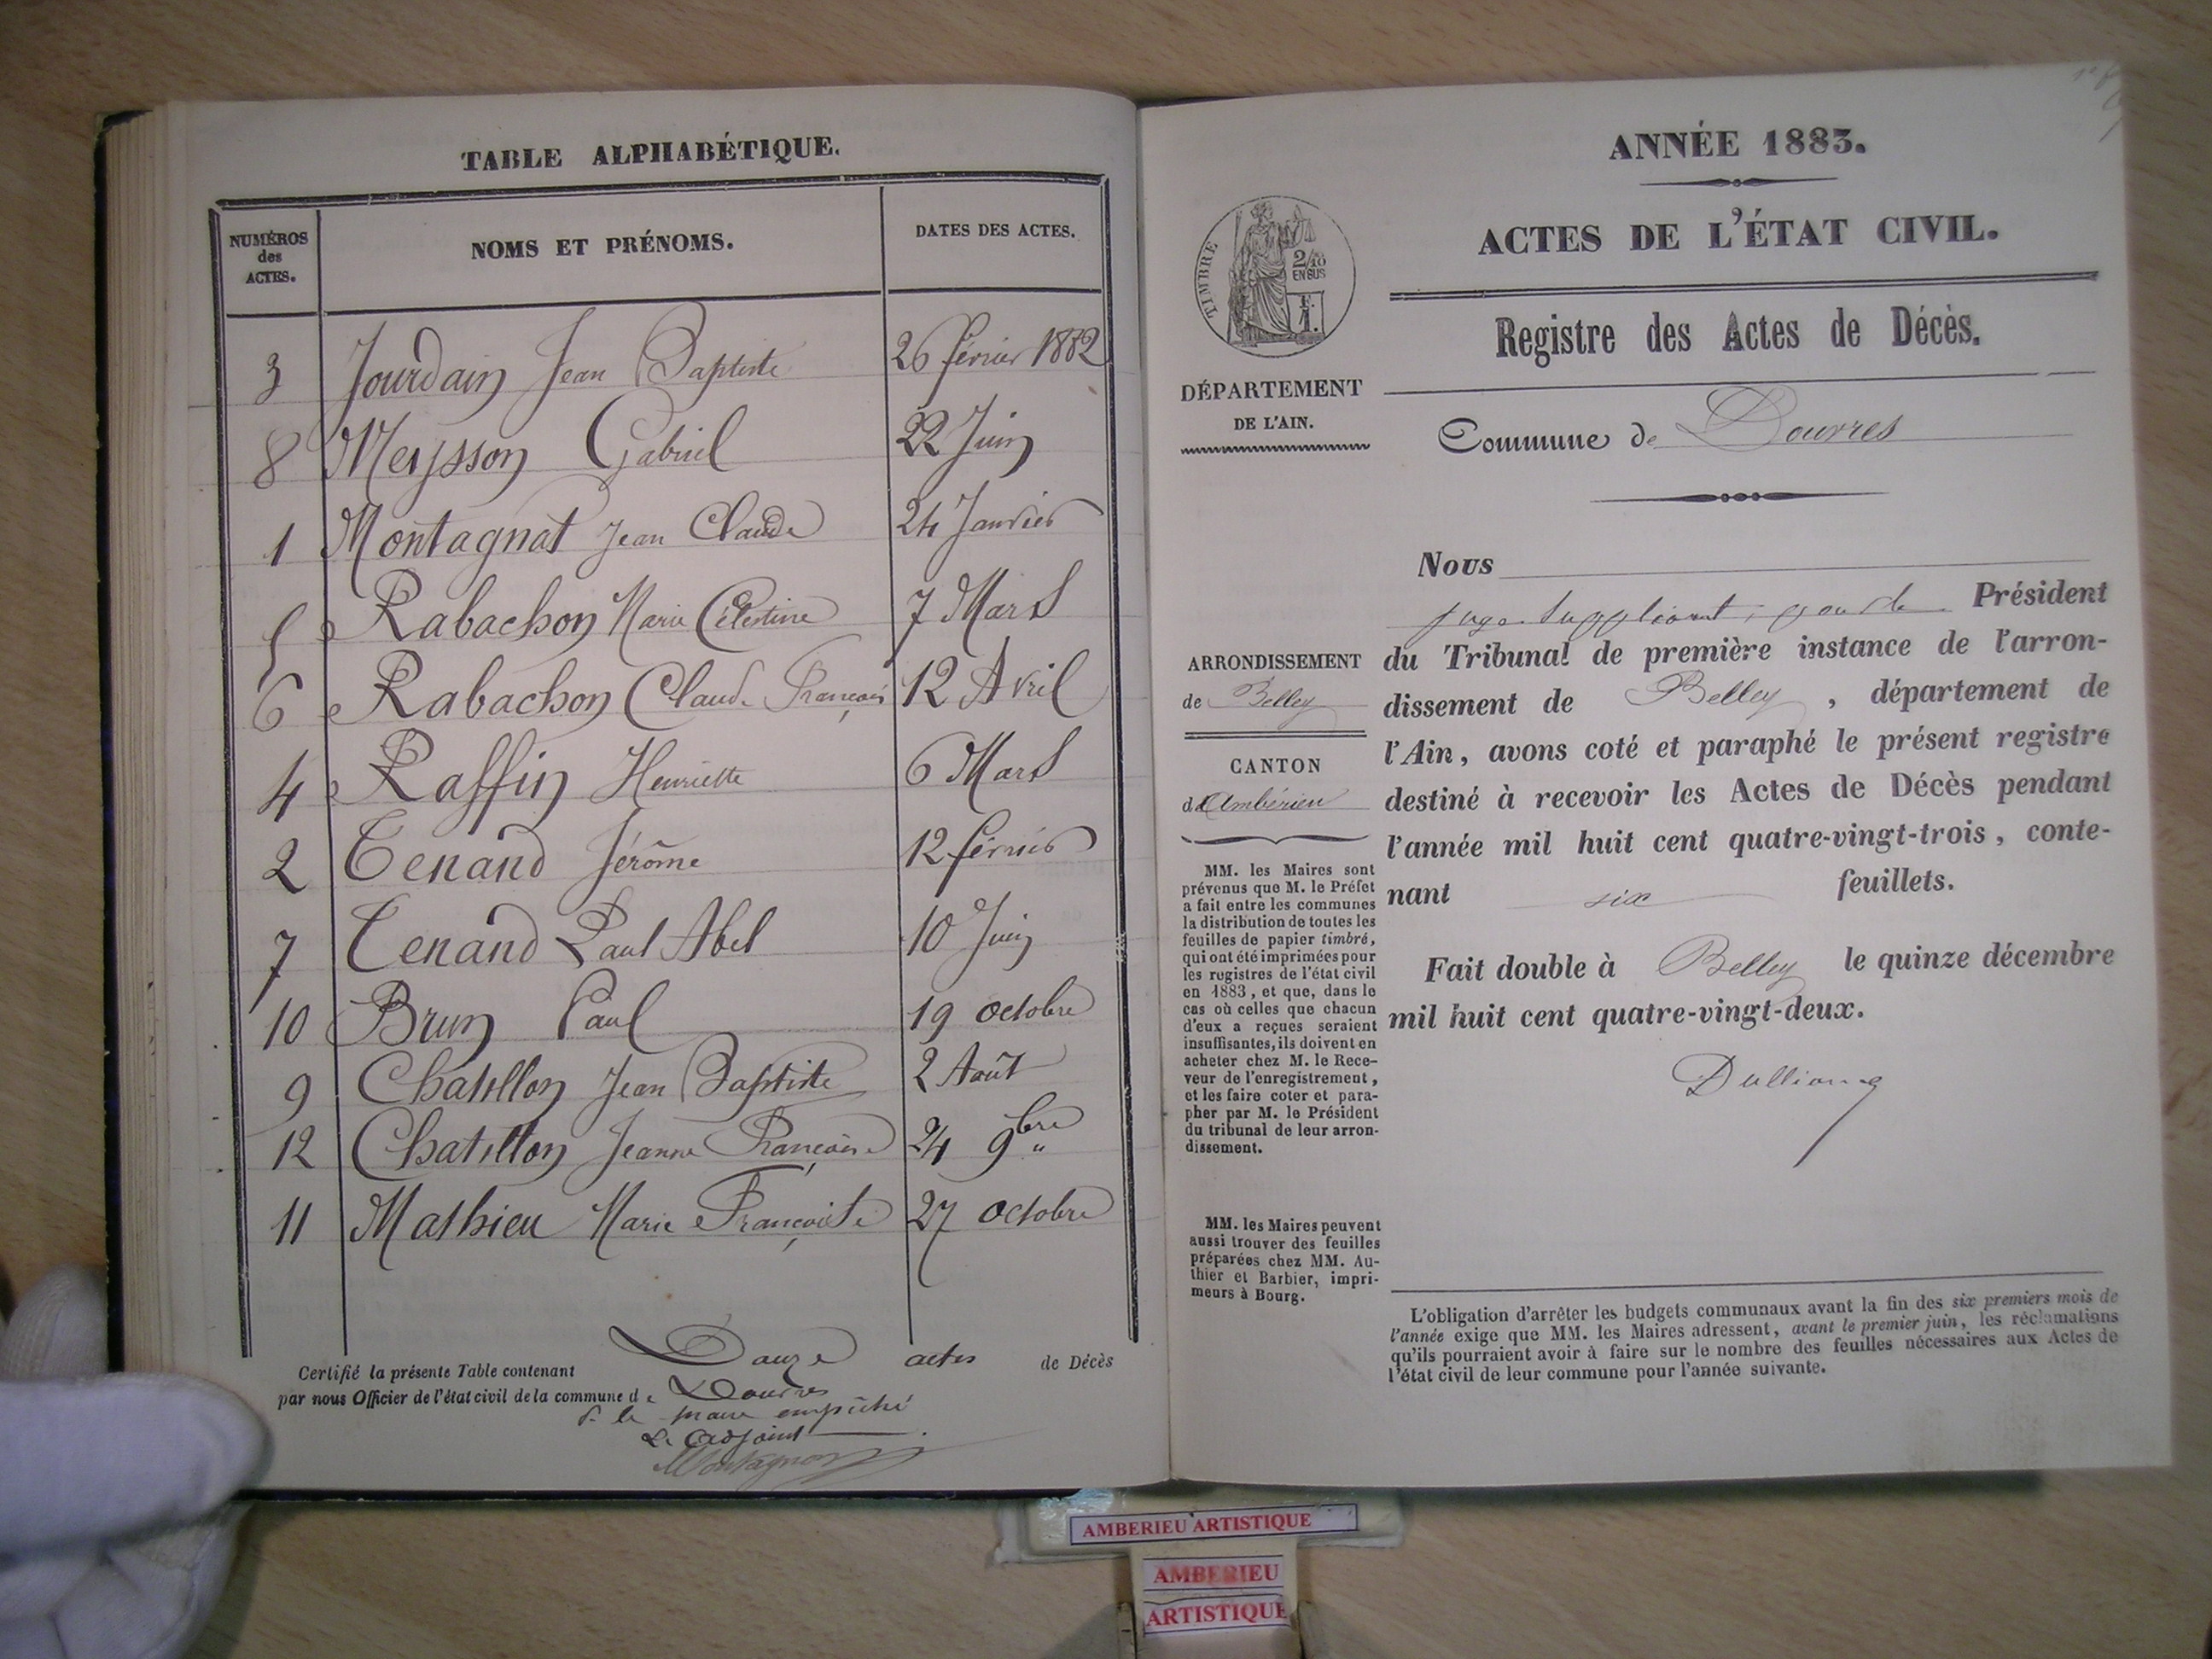 TABLE ALPHABÉTIQUE.
NUMÉROS des ACTES. NOMS ET PRÉNOMS. DATES DES ACTES.
3 Jourdain Jean Baptiste 26 février 1882
8 Meysson Gabriel 22 Juin
1 Montagnat Jean Claude 24 Janvier
5 Rabachon Marie Célestine 7 Mars
6 Rabachon Claude François 12 Avril
4 Raffin Henriette 6 Mars
2 Tenand Jérôme 12 février
7 Tenand Paul Abel 10 Juin
10 Brun Paul 19 octobre
9 Chatillon Jean Baptiste 2 Août
12 Chatillon Jeanne Françoise 24 9bre "
11 Mathieu Marie Françoise 27 octobre
Certifié la présente Table contenant Douze actes de Décès
par nous Officier de l'état civil de la commune de Douvres
P. le maire empêché
Le Adjoint
Montagnon
ANNÉE 1883.
ACTES DE L'ÉTAT CIVIL.
Registre des Actes de Décès.
Commune de Douvres
TIMBRE
2/10
EN SUS
DÉPARTEMENT
DE L'AIN.
ARRONDISSEMENT
de Belley
CANTON
d'Ambérieu
MM. les Maires sont
prévenus que M. le Préfet
a fait entre les communes
la distribution de toutes les
feuilles de papier timbré,
qui ont été imprimées pour
les registres de l'état civil
en 1883, et que, dans le
cas où celles que chacun
d'eux a reçues seraient
insuffisantes, ils doivent en
acheter chez M. le Rece-
veur de l'enregistrement,
et les faire coter et para-
pher par M. le Président
du tribunal de leur arron-
dissement.
MM. les Maires peuvent
aussi trouver des feuilles
préparées chez MM. Au-
thier et Barbier, impri-
meurs à Bourg.
Nous
juge suppléant, pour le Président
du Tribunal de première instance de l'arron-
dissement de Belley, département de
l'Ain, avons coté et paraphé le présent registre
destiné à recevoir les Actes de Décès pendant
l'année mil huit cent quatre-vingt-trois, conte-
nant six feuillets.
Fait double à Belley le quinze décembre
mil huit cent quatre-vingt-deux.
L'obligation d'arrêter les budgets communaux avant la fin des six premiers mois de
l'année exige que MM. les Maires adressent, avant le premier juin, les réclamations
qu'ils pourraient avoir à faire sur le nombre des feuilles nécessaires aux Actes de
l'état civil de leur commune pour l'année suivante.
AMBERIEU ARTISTIQUE
AMBERIEU
ARTISTIQUE